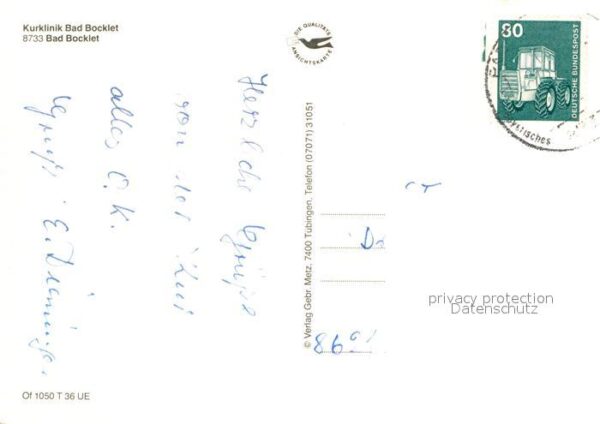 Kurklinik Bad Bocklet
8733 Bad Bocklet
DIE QUALITÄTS
ANSICHTSKARTE
80
DEUTSCHE BUNDESPOST
Herzliche Grüße
von der Kur
alles O.K.
Gruß E.
© Verlag Gebr. Metz, 7400 Tübingen, Telefon (07071) 31051
privacy protection
Datenschutz
Of 1050 T 36 UE